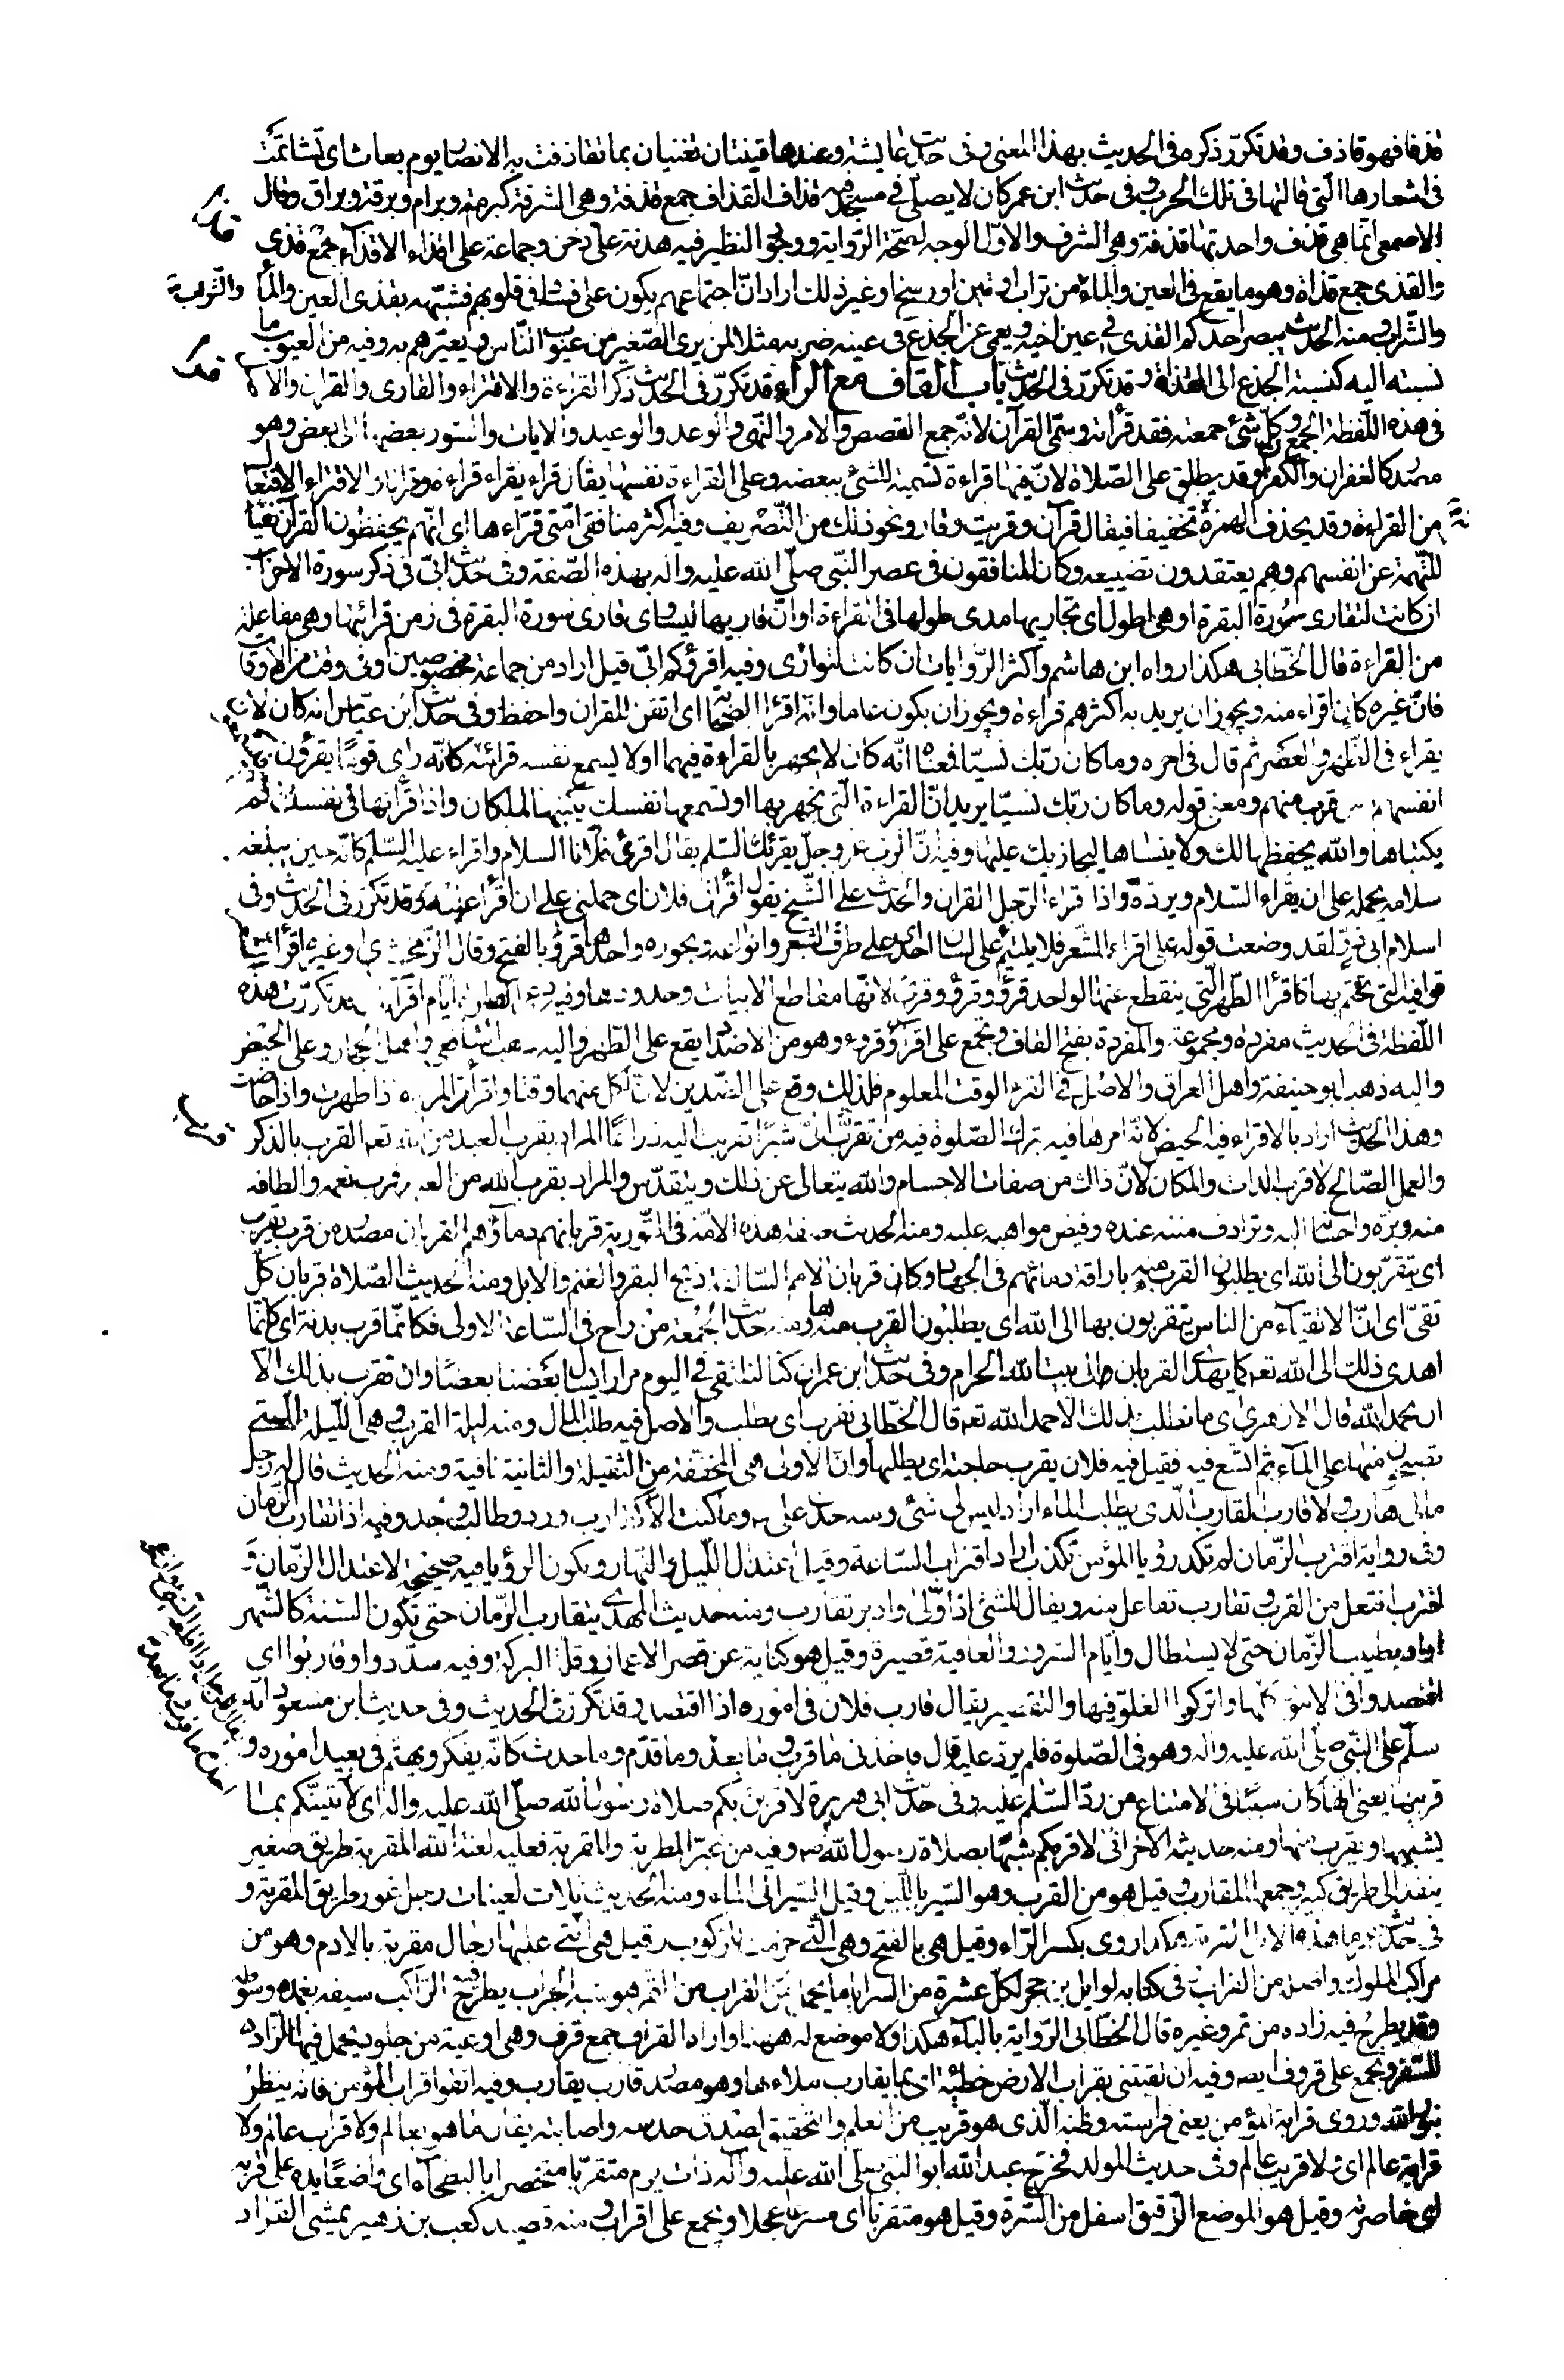 قذفا فهو قاذف وقد تكرّر ذكره فى الحديث بهذا المعنى وفى حديث عايشة وعندها قينتان تغنيان بما تقاذفت به الانصار يوم بعاث اى تشاتمت
فى اشعارها الّتى قالتها فى تلك الحرب وفى حديث ابن عمر كان لا يصلّى فى مسجد فيه قذاف القذاف جمع قذفة وهى الشرفة كبرمة وبرام وبرقة وبراق وقال
الاصمعى انّما هى قذف واحدتها قذفة وهى الشرف والاوّل الوجه لصحّة الرّواية ووجود النظير فيه هدنة على دخن وجماعة على اقذاء الاقذآء جمع قذى
والقذى جمع قذاة وهو ما يقع فى العين والماء من تراب او تبن او وسخ او غير ذلك اراد انّ اجتماعهم يكون على فساد فى قلوبهم فشبّهه بقذى العين والمآء
والشّراب ومنه الحديث يبصر احدكم القذى فى عين اخيه ويعمى عن الجذع فى عينه ضربه مثلا لمن يرى الصّغير من عيوب النّاس ويعيّرهم به وفيه من العيوب ما
نسبته اليه كنسبة الجذع الى القذاة وقد تكرّر فى الحديث باب القاف مع الراء قد تكرّر فى الحديث ذكر القراءة والاقتراء والقارى والقران والاصل
فى هذه اللّفظة الجمع وكلّ شئ جمعته فقد قرأته وسمّى القرآن لانّه جمع القصص والامر والنّهى والوعد والوعيد والايات والسّور بعضها الى بعض وهو
مصدر كالغفران والكفران وقد يطلق على الصّلاة لانّ فيها قراءة تسمية للشئ ببعضه وعلى القراءة نفسها يقال قراء يقراء قراءة وقرانا والاقتراء الافتعال
من القراءة وقد يحذف الهمزة تخفيفا فيقال قران وقريت وقار ونحو ذلك من التّصريف وفيه اكثر منافقى امّتى قرّاءها اى انّهم يحفظون القرآن نفيا
للتّهمة عن انفسهم وهم يعتقدون تضييعه وكان المنافقون فى عصر النّبى صلّى الله عليه واله بهذه الصّفة وفى حديث ابىّ فى ذكر سورة الاحزاب
ان كانت لتقارى سورة البقرة او هى اطول اى تجاريها مدى طولها فى القراءة او انّ قاريها ليساوى قارى سورة البقرة فى زمن قرائتها وهى مفاعلة
من القراءة قال الخطّابى هكذا رواه ابن هاشم واكثر الرّوايات ان كانت لتوازى وفيه اقرؤكم ابىّ قيل اراد من جماعة مخصوصين او فى وقت من الاوقات
فانّ غيره كان اقراء منه ويجوز ان يريد به اكثرهم قراءة ويجوز ان يكون عاما وانّه اقرأ الصحابة اى اتقن للقران واحفظ وفى حديث ابن عبّاس انه كان لا
يقراء فى الظّهر والعصر ثم قال فى اخره وما كان ربّك نسيّا معناه انّه كان لا يجهر بالقراءة فيهما او لا يسمع نفسه قرائته كانّه راى قوما يقرؤن
انفسهم ومن قرب منهم ومعنى قوله وما كان ربّك نسيّا يريد انّ القراءة الّتى تجهر بها او تسمعها نفسك يكتبها الملكان واذا قرأتها فى نفسك لم
يكتباها والله يحفظها لك ولا ينساها ليجازيك عليها وفيه انّ الرب عز وجلّ يقرئك السّلم يقال اقرئ فلانا السلام واقراء عليه السّلم كانّه حين يبلغه
سلامه يحمله على ان يقراء السّلام ويردّه واذا قراء الرّجل القران والحديث على الشّيخ يقول اقرأنى فلان اى حملنى على ان اقرأ عليه وقد تكرّر فى الحديث وفى
اسلام ابى ذرّ لقد وضعت قوله على اقراء الشّعر فلا يلتئم على لسان احد اى على طرق الشعر وانواعه وبحوره واحدها قرؤ بالفتح وقال الزّمخشرى وغيره اقرأ الشعر
قوافيه الّتى تختم بها كاقرأ الطّهر الّتى ينقطع عنها الواحد قرؤ وقرؤ وقرئ لانّها مقاطع الابيات وحدودها وفيه دعى الصلوة ايّام اقرآئك قد تكرّرت هذه
اللّفظة فى الحديث مفردة ومجموعة والمفردة بفتح القاف وتجمع على اقراء وقروء وهو من الاضداد يقع على الطّهر واليه ذهب الشافعى واهل الحجاز وعلى الحيض
واليه ذهب ابو حنيفة واهل العراق والاصل فى القرء الوقت المعلوم فلذلك وقع على الضّدين لانّ لكل منهما وقتا واقرأت المراة اذا طهرت واذا حاضت
وهذا الحديث اراد بالاقراء فيه الحيض لانّه امرها فيه بترك الصّلوة فيه من تقرّب الىّ شبرا تقربت اليه ذراعا المراد بقرب العبد من الله تعه القرب بالذكر
والعمل الصّالح لا قرب الذات والمكان لانّ ذلك من صفات الاجسام والله يتعالى عن ذلك ويتقدّس والمراد بقرب الله من العبد قرب نعمه والطافه
منه وبرّه واحسانه اليه وترادف مننه عنده وفيض مواهبه عليه ومنه الحديث صفة هذه الامّة فى التّورية قربانهم دماؤهم القربان مصدر من قرب يقرب
اى يتقرّبون الى الله اى يطلبون القرب منه باراقة دمائهم فى الجهاد وكان قربان الامم السّالفة ذبح البقر والغنم والابل ومنه الحديث الصّلاة قربان كلّ
تقىّ اى انّ الاتقيآء من الناس يتقربون بها الى الله اى يطلبون القرب منه بها ومنه حديث الجمعة من راح فى السّاعة الاولى فكانّما قرب بدنة اى كانّما
اهدى ذلك الى الله تعه كما يهدى القربان الى بيت الله الحرام وفى حديث ابن عمر ان كنّا لنلتقى فى اليوم مرارا يسال بعضنا بعضا وان تقرب بذلك الّا
ان نحمد الله قال الازهرى اى ما نطلب بذلك الّا حمد الله تعه قال الخطّابى نقرب اى نطلب والاصل فيه طلب المال ومنه ليلة القرب وهى اللّيلة الّتى
تصبحون منها على المآء ثم اتّسع فيه فقيل فيه فلان يقرب حاجته اى يطلبها وان الاولى هى المخففة من الثقيلة والثانية نافية ومنه الحديث قال له رجل
مالى هارب ولا قارب القارب الّذى يطلب الماء اراد ليس لى شئ ومنه حديث على ع وما كنت الّا كقارب ورد وطالب وجد وفيه اذا تقارب الزّمان
وفى رواية اقترب الزّمان لم تكد رؤيا المؤمن تكذب اراد اقتراب السّاعة وقيل اعتدال اللّيل والنّهار ويكون الرؤيا فيه صحيحة لاعتدال الزّمان و
اقترب افتعل من القرب وتقارب تفاعل منه ويقال للشئ اذا ولّى وادبر تقارب ومنه حديث المهدى يتقارب الزّمان حتى تكون السّنة كالشّهر
اراد يطيب الزّمان حتى لا يستطال وايّام السّرور والعافية قصيرة وقيل هو كناية عن قصر الاعمار وقلّة البركة وفيه سدّدوا وقاربوا اى
اقتصدوا فى الامور كلّها واتركوا الغلوّ فيها والتقصير يقال قارب فلان فى اموره اذا اقتصد وقد تكرر فى الحديث وفى حديث ابن مسعود انّه
سلّم على النّبى صلى الله عليه واله وهو فى الصّلوة فلم يرد عليه قال فاخذنى ما قرب وما بعد وما قدّم وما حدث كانّه يفكر ويهتم فى بعيد اموره و
قريبها يعنى ايّها كان سببا فى الامتناع من ردّ السّلم عليه وفى حديث ابى هريرة لاقربن بكم صلاة رسول الله صلّى الله عليه واله اى لآتينّكم بما
يشبهها ويقرب منها ومنه حديثه الاخر انى لاقربكم شبها بصلاة رسول الله ص وفيه من غيّر المطربة والمقربة فعليه لعنة الله المقربة طريق صغير
ينفذ الى طريق كبير وجمعها المقارب وقيل هو من القرب وهو السّير باللّيل وقيل السّير الى الماء ومنه الحديث ثلاث لعينات رجل غور طريق المقربة و
فى حديث ما هذه الابل المقربة هكذا روى بكسر الرّاء وقيل هى بالفتح وهى الّتى حزمت للركوب وقيل هى الّتى عليها رحال مقربة بالادم وهو من
مراكب الملوك واصله من القراب فى كتابه لوايل بن حجر لكلّ عشرة من السرايا ما يحمل القراب من التّمر هو شبه الجراب يطرح فيه الرّاكب سيفه بغمده وسوطه
وقد يطرح فيه زاده من تمر وغيره قال الخطّابى الرّواية بالبآء هكذا ولا موضع له ههنا واراه القراف جمع قرف وهى اوعية من جلود يحمل فيها الزّاد
للسّفر ويجمع على قروف ايضه وفيه ان لقيتنى بقراب الارض خطيئة اى بما يقارب ملاءها وهو مصدر قارب يقارب وفيه اتقوا قراب المؤمن فانه ينظر
بنور الله وروى قرابة المؤمن يعنى فراسته وظنه الّذى هو قريب من العلم والتحقيق لصدق حدسه واصابته يقال ما هو بعالم ولا قراب عالم ولا
قرابة عالم اى ولا قريب عالم وفى حديث المولد فخرج عبد الله ابو النبى صلى الله عليه وآله ذات يوم متقرّبا متخصرا بالبطحآء اى واضعا يده على قربه
اى خاصرته وقيل هو الموضع الرّقيق اسفل من السّرة وقيل هو متقربا اى مسرعا عجلا ويجمع على اقراب ومنه قصيد كعب بن زهير يمشى القراد